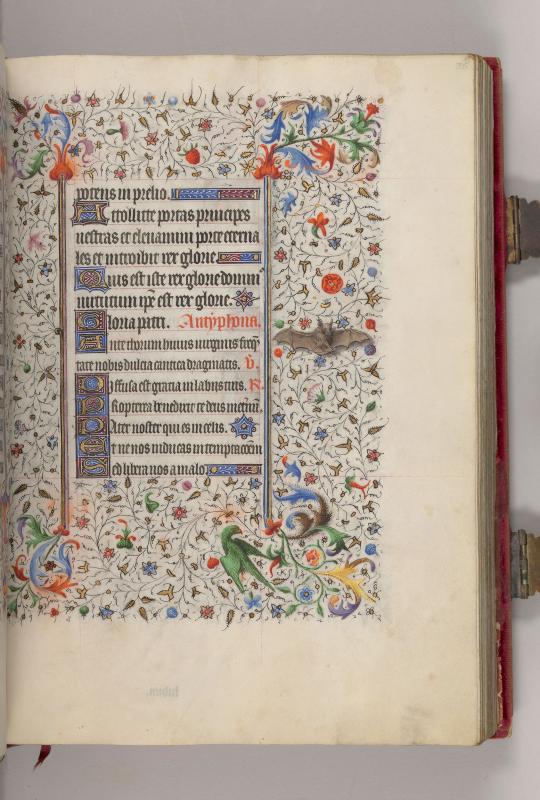 potens in prelio.
Attollite portas principes
vestras et elevamini porte eterna
les et introibit rex glorie.
Quis est iste rex glorie domin
virtutum ipse est rex glorie.
Gloria patri. Antyphona.
Ante thorum huius virginis freqn
tate nobis dulcia cantica dragmatis. V.
Diffusa est gracia in labiis tuis. R.
Propterea benedixit te deus in eternum.
Pater noster qui es in celis.
Et ne nos inducas in temptacoem
Sed libera nos a malo